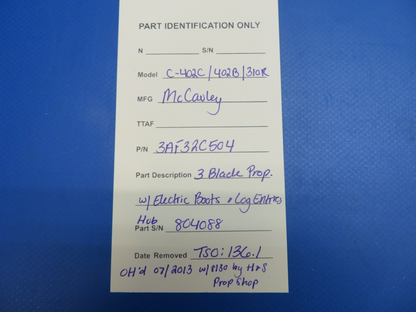 PART IDENTIFICATION ONLY
N S/N
Model C-402C/402B/310R
MFG McCauley
TTAF
P/N 3AF32C504
Part Description 3 Blade Prop.
w/ Electric Boots & Log Entries
Hub
Part S/N 804088
Date Removed TSO: 136.1
OH'd 07/2013 w/8130 by H&S
Prop Shop